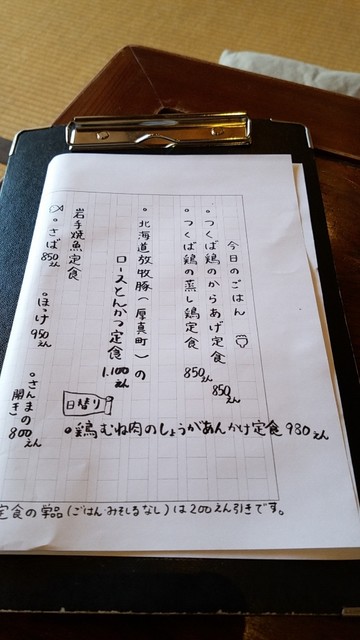 今日のごはん
。つくば鶏のからあげ定食 850えん
。つくば鶏の蒸し鶏定食 850えん
。北海道放牧豚(厚真町)の
ロースとんかつ定食 1,100えん
岩手焼魚定食
。さば 850えん
。ほっけ 950えん
。さんまの開き 800えん
日替り
。鶏むね肉のしょうがあんかけ定食 980えん
定食の単品(ごはん・みそしるなし)は200えん引きです。